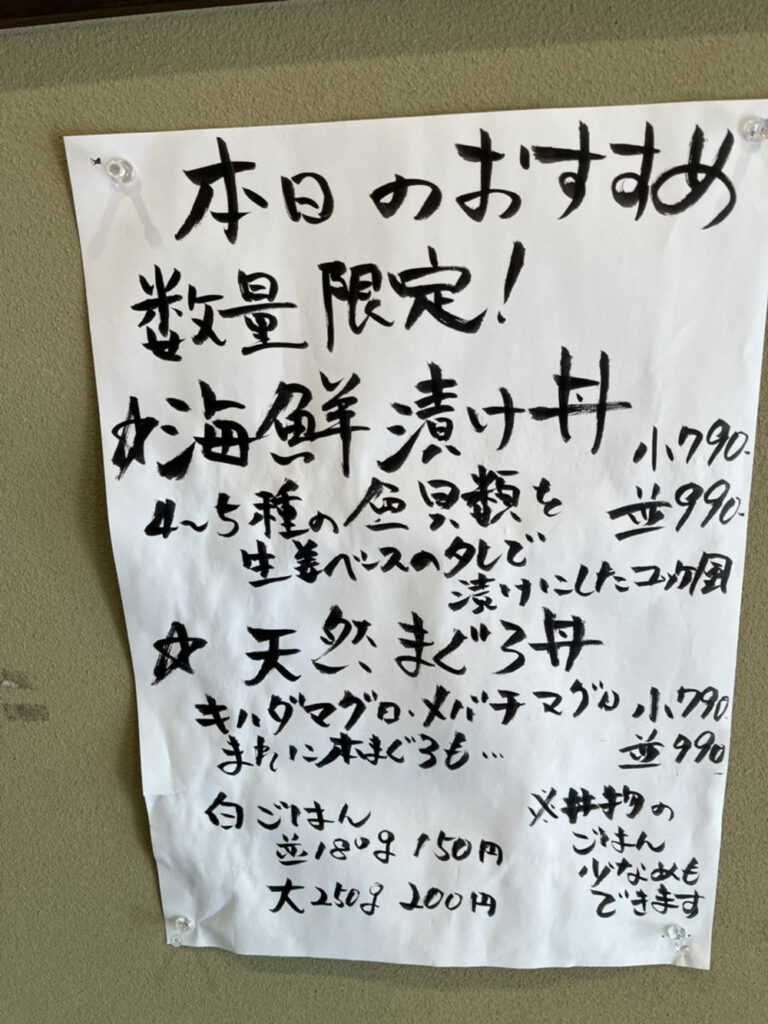 本日のおすすめ
数量限定!
☆海鮮漬け丼 小790-
4〜5種の魚貝類を 並990-
生姜ベースのタレで
漬けにしたユッケ風
☆天然まぐろ丼
キハダマグロ・メバチマグロ 小790-
まれに本まぐろも… 並990
白ごはん
並180g 150円
大250g 200円
※丼物の
ごはん
少なめも
できます